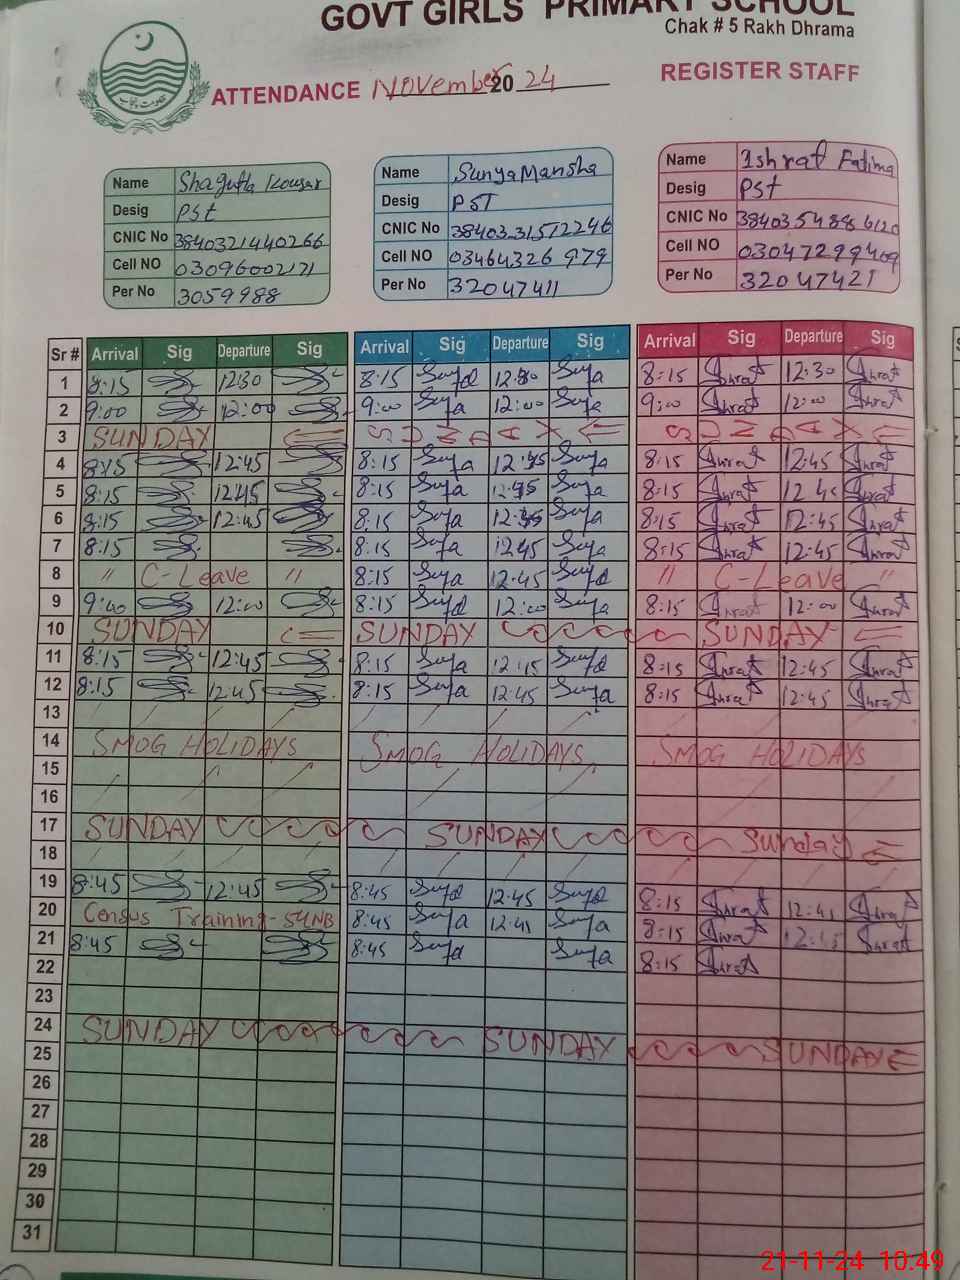 GOVT GIRLS PRIMARY SCHOOL
Chak # 5 Rakh Dhrama
ATTENDANCE November 2024 REGISTER STAFF
Name Shagufta Kousar
Desig PSt
CNIC No 3840321440266
Cell NO 03096002171
Per No 3059988
Name Sunya Mansha
Desig PST
CNIC No 3840331512246
Cell NO 03464326979
Per No 32047411
Name Ishrat Fatima
Desig PSt
CNIC No 3840354886120
Cell NO 03047299409
Per No 32047421
Sr # Arrival Sig Departure Sig Arrival Sig Departure Sig Arrival Sig Departure Sig
1 8:15 12:30 8:15 12:30 8:15 Ishrat 12:30 Ishrat
2 9:00 12:00 9:00 12:00 9:00 Ishrat 12:00 Ishrat
3 SUNDAY SUNDAY SUNDAY
4 8:15 12:45 8:15 12:45 8:15 Ishrat 12:45 Ishrat
5 8:15 12:45 8:15 12:45 8:15 Ishrat 12:45 Ishrat
6 8:15 12:45 8:15 12:45 8:15 Ishrat 12:45 Ishrat
7 8:15 8:15 12:45 8:15 Ishrat 12:45 Ishrat
8 " C-Leave " 8:15 12:45 " C-Leave "
9 9:00 12:00 8:15 12:00 8:15 Ishrat 12:00 Ishrat
10 SUNDAY SUNDAY SUNDAY
11 8:15 12:45 8:15 12:45 8:15 Ishrat 12:45 Ishrat
12 8:15 12:45 8:15 12:45 8:15 Ishrat 12:45 Ishrat
13
14 SMOG HOLIDAYS SMOG HOLIDAYS SMOG HOLIDAYS
15
16
17 SUNDAY SUNDAY Sunday
18
19 8:45 12:45 8:45 12:45 8:15 Ishrat 12:45 Ishrat
20 Census Training-54NB 8:45 12:45 8:15 Ishrat 12:45 Ishrat
21 8:45 8:45 8:15 Ishrat
22
23
24 SUNDAY SUNDAY SUNDAY
25
26
27
28
29
30
31
21-11-24 10.49